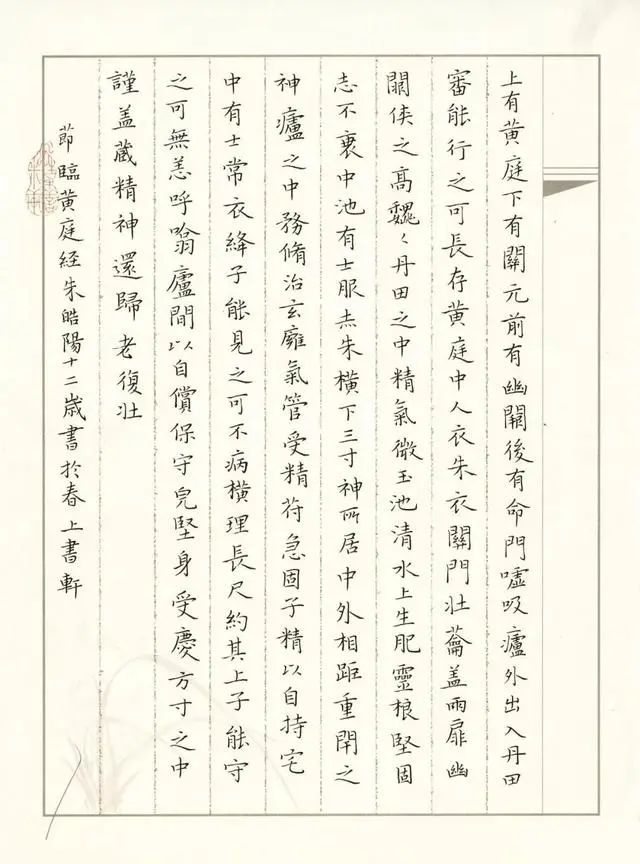 上有黄庭下有關元前有幽闕後有命門噓吸廬外出入丹田
審能行之可長存黄庭中人衣朱衣關門壯蘥盖兩扉幽
闕侠之髙魏〻丹田之中精氣微玉池清水上生肥靈根堅固
志不衰中池有士服赤朱橫下三寸神所居中外相距重閇之
神廬之中務脩治玄廱氣管受精苻急固子精以自持宅
中有士常衣絳子能見之可不病橫理長尺約其上子能守
之可無恙呼噏廬間以自償保守皃堅身受慶方寸之中
謹盖蔵精神還歸老復壯
節臨黄庭經朱皓陽十二歲書於春上書軒